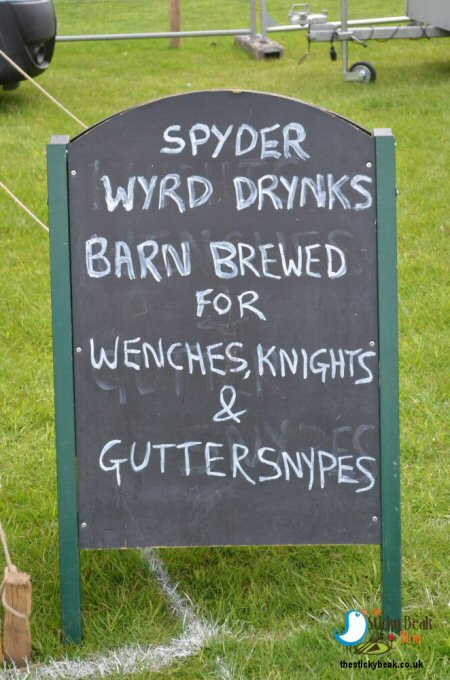 SPYDER
WYRD DRYNKS
BARN BREWED
FOR
WENCHES, KNIGHTS
&
GUTTERSNYPES
The
Sticky Beak
Blog
thestickybeak.co.uk